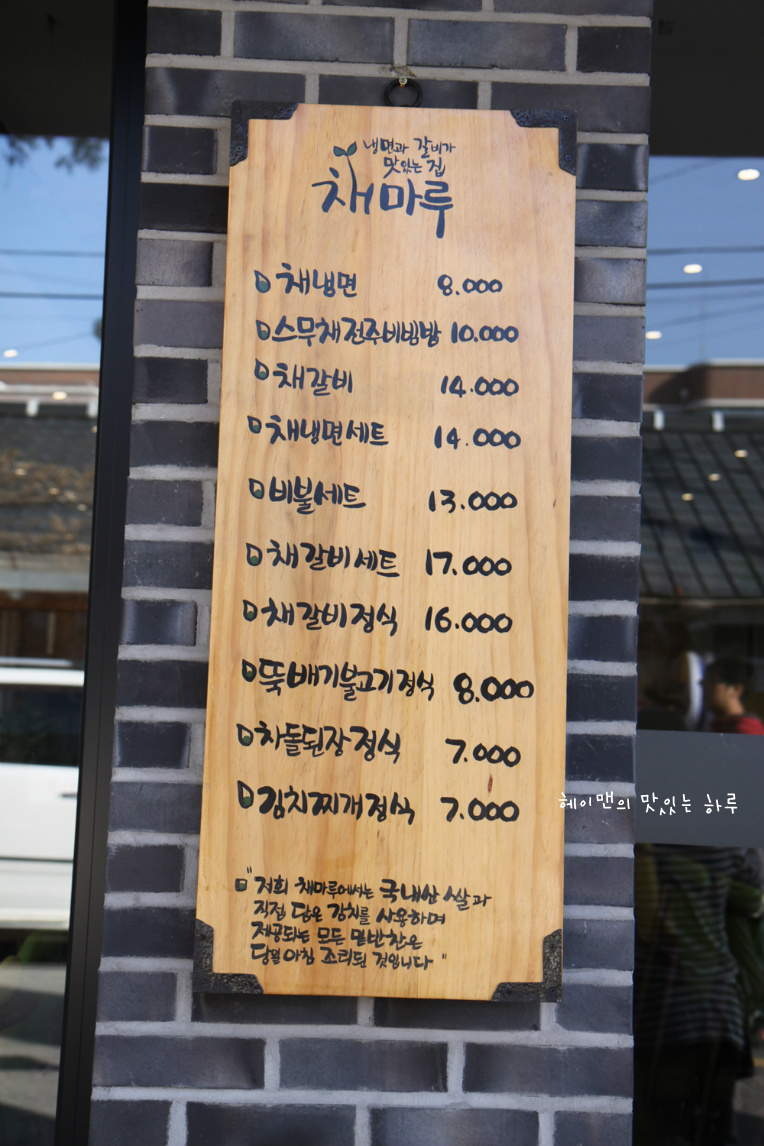 냉면과 갈비가
맛있는 집
채마루
채냉면 8.000
스무채전주비빔밥 10.000
채갈비 14.000
채냉면세트 14.000
비불세트 13.000
채갈비세트 17.000
채갈비정식 16.000
뚝배기불고기정식 8.000
차돌된장정식 7.000
김치찌개정식 7.000
"저희 채마루에서는 국내산 쌀과
직접 담은 김치를 사용하며
제공되는 모든 밑반찬은
당일아침 조리된 것입니다"
헤이맨의 맛있는 하루